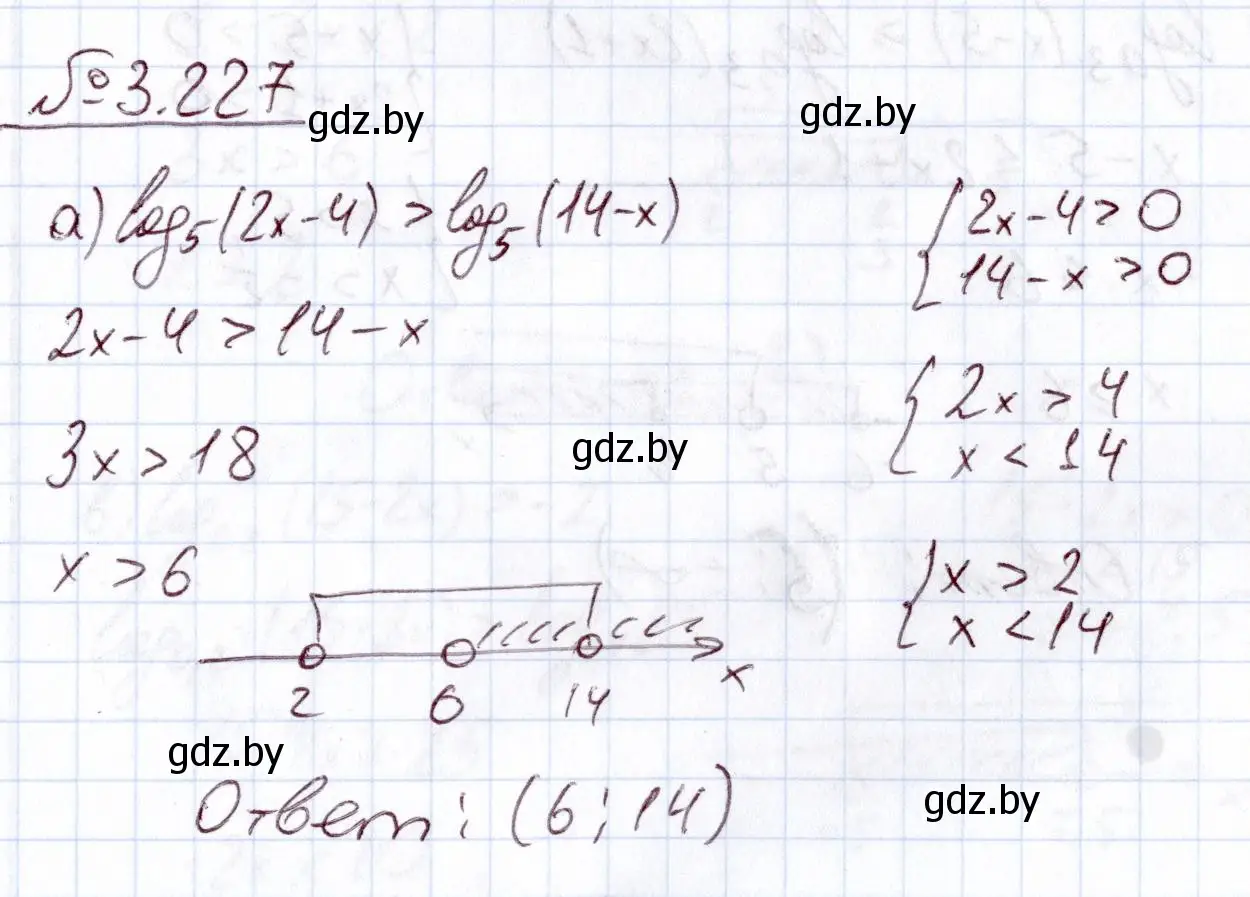 № 3.227
gdz.by
gdz.by
а) log₅(2x-4) > log₅(14-x)
2x-4 > 14-x
3x > 18
x > 6
{ 2x-4 > 0
14-x > 0
{ 2x > 4
x < 14
gdz.by
{ x > 2
x < 14
2 6 14 x
gdz.by
Ответ: (6; 14)
gdz.by